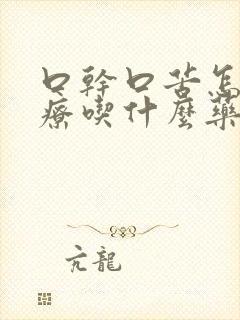 口幹口苦怎
療喫什麼藥
亢龍